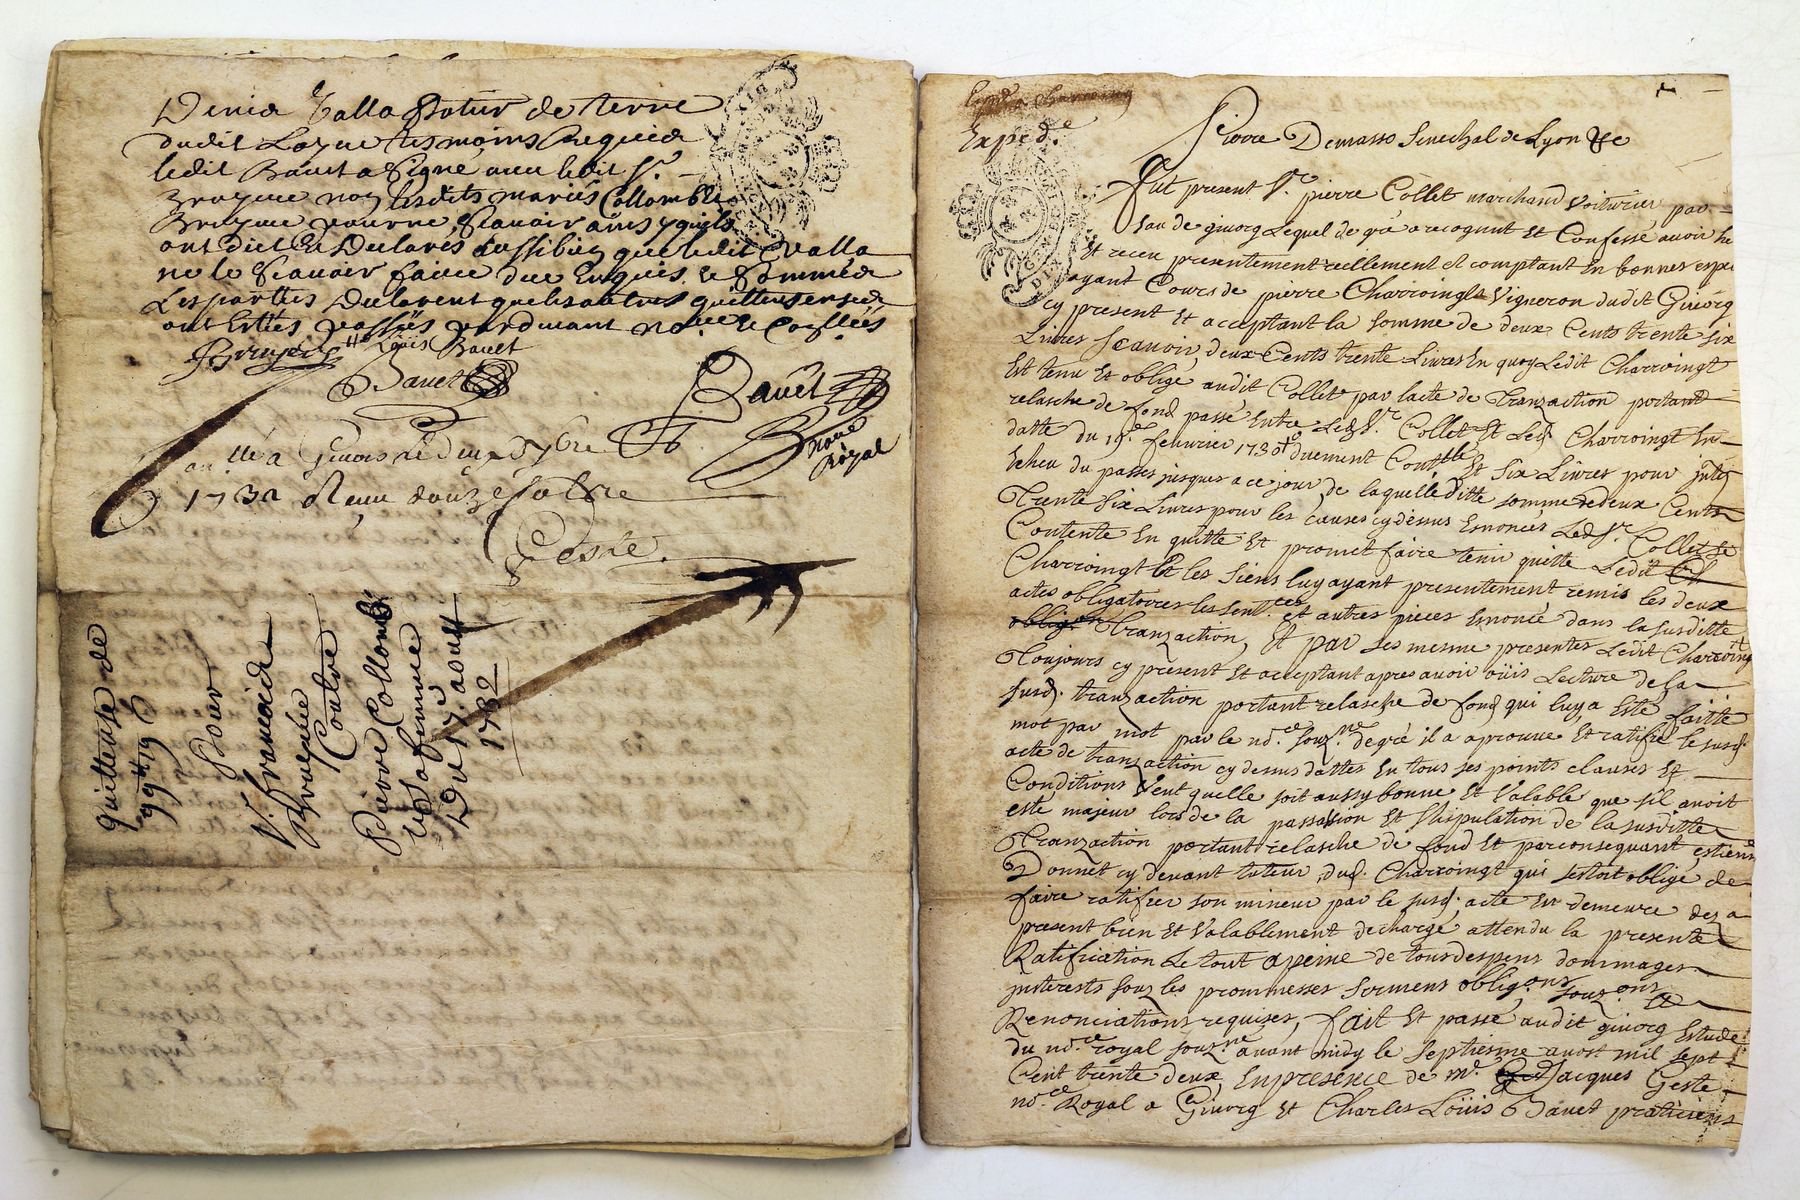 Denid Valla potier de terre
dudit Layue tesmoins requied
ledit Bauet a signé auec ledit Sr.
Bruyeue non lesdits mariés Collomb et
Bruyeue pour ne sçauoir ainsy quils
ont dit et Declarés aussi bien que ledit Valla
ne le sçauoir faire due Enquis et sommés
Les parties Declarent que les autres quittenses
ont Estées passées pardeuant nore
Louis Bauet
Bauet
Bauet
nore
Royal
a Giuors le deux 7bre
1732 Reçu douze sols
Coste
quittense de
99ll 19s 6
pour
Sr. francois
Bruyeue
Contre
Pierre Collomb
et sa femme
Du 17e aoust
1732
Exped.e
Pierre Demasso Senechal de Lyon &c
fut present Sr. pierre Collet marchand Voiturier, par
sau de giuorg Lequel de gré a recognut Et Confessé auoir he
Et receu presentement reellement et comptant En bonnes espe
ayant Cours de pierre Charroingt Vigneron dudit Giuorg
cy present Et acceptant la somme de deux Cents trente six
Liures scauoir, deux Cents trente Liures En quoy Ledit Charroingt
Est tenu Et obligé audit Collet par lacte de tranzaction portant
relasche de fond passé Entre Led. Sr. Collet Et Led. Charroingt En
datte du 19e. feburier 1730 duement Contllé Et six Liures pour intts
Echeu du passés jusques a ce jour, de laquelle ditte somme de deux Cents
Trente six Liures pour les causes cy dessus Enoncés Led. Sr. Collet se
Contente En quitte Et promet faire tenir quitte Ledit Ch
Charroingt Et les siens luy ayant presentement remis les deux
actes obligatoires les sent.ces et autres pieces Enoncé dans la susditte
oblig.on Tranzaction, Et par ses mesme presentes Ledit Charroingt
Toujours cy present Et acceptant apres auoir oüis Lecture de la
susd. tranzaction portant relasche de fond qui luy, a Esté faitte
mot par mot par le no.re souz.né de gré il a aprouue Et ratifié le susd.
acte de tranzaction cy dessus dattés En tous ses points clauses Et
Conditions Veut quelle soit aussy bonne Et Valable que sil auoit
esté majeur lors de la passassion Et Stispulation de la susditte
Tranzaction portant relasche de fond Et par consequant estienne
Donnet cy deuant tuteur, dud. Charroingt qui sestoit obligé de
faire ratifier son mineur par le susd. acte En demeure des a
present bien Et Valablement dechargé attendu la presente
Ratification Le tout a peine de tous despens dommages
jnterests souz les prommesses sermens oblig.ons souz.ons
Renonciations requises, fait Et passé audit giuorg Estude
du no.re royal souz.né auant midy le septiesme aoost mil sept
Cent trente deux En presence de me. Jacques Geste
no.re Royal a Giuorg Et Charles Loüis Bauet praticiens